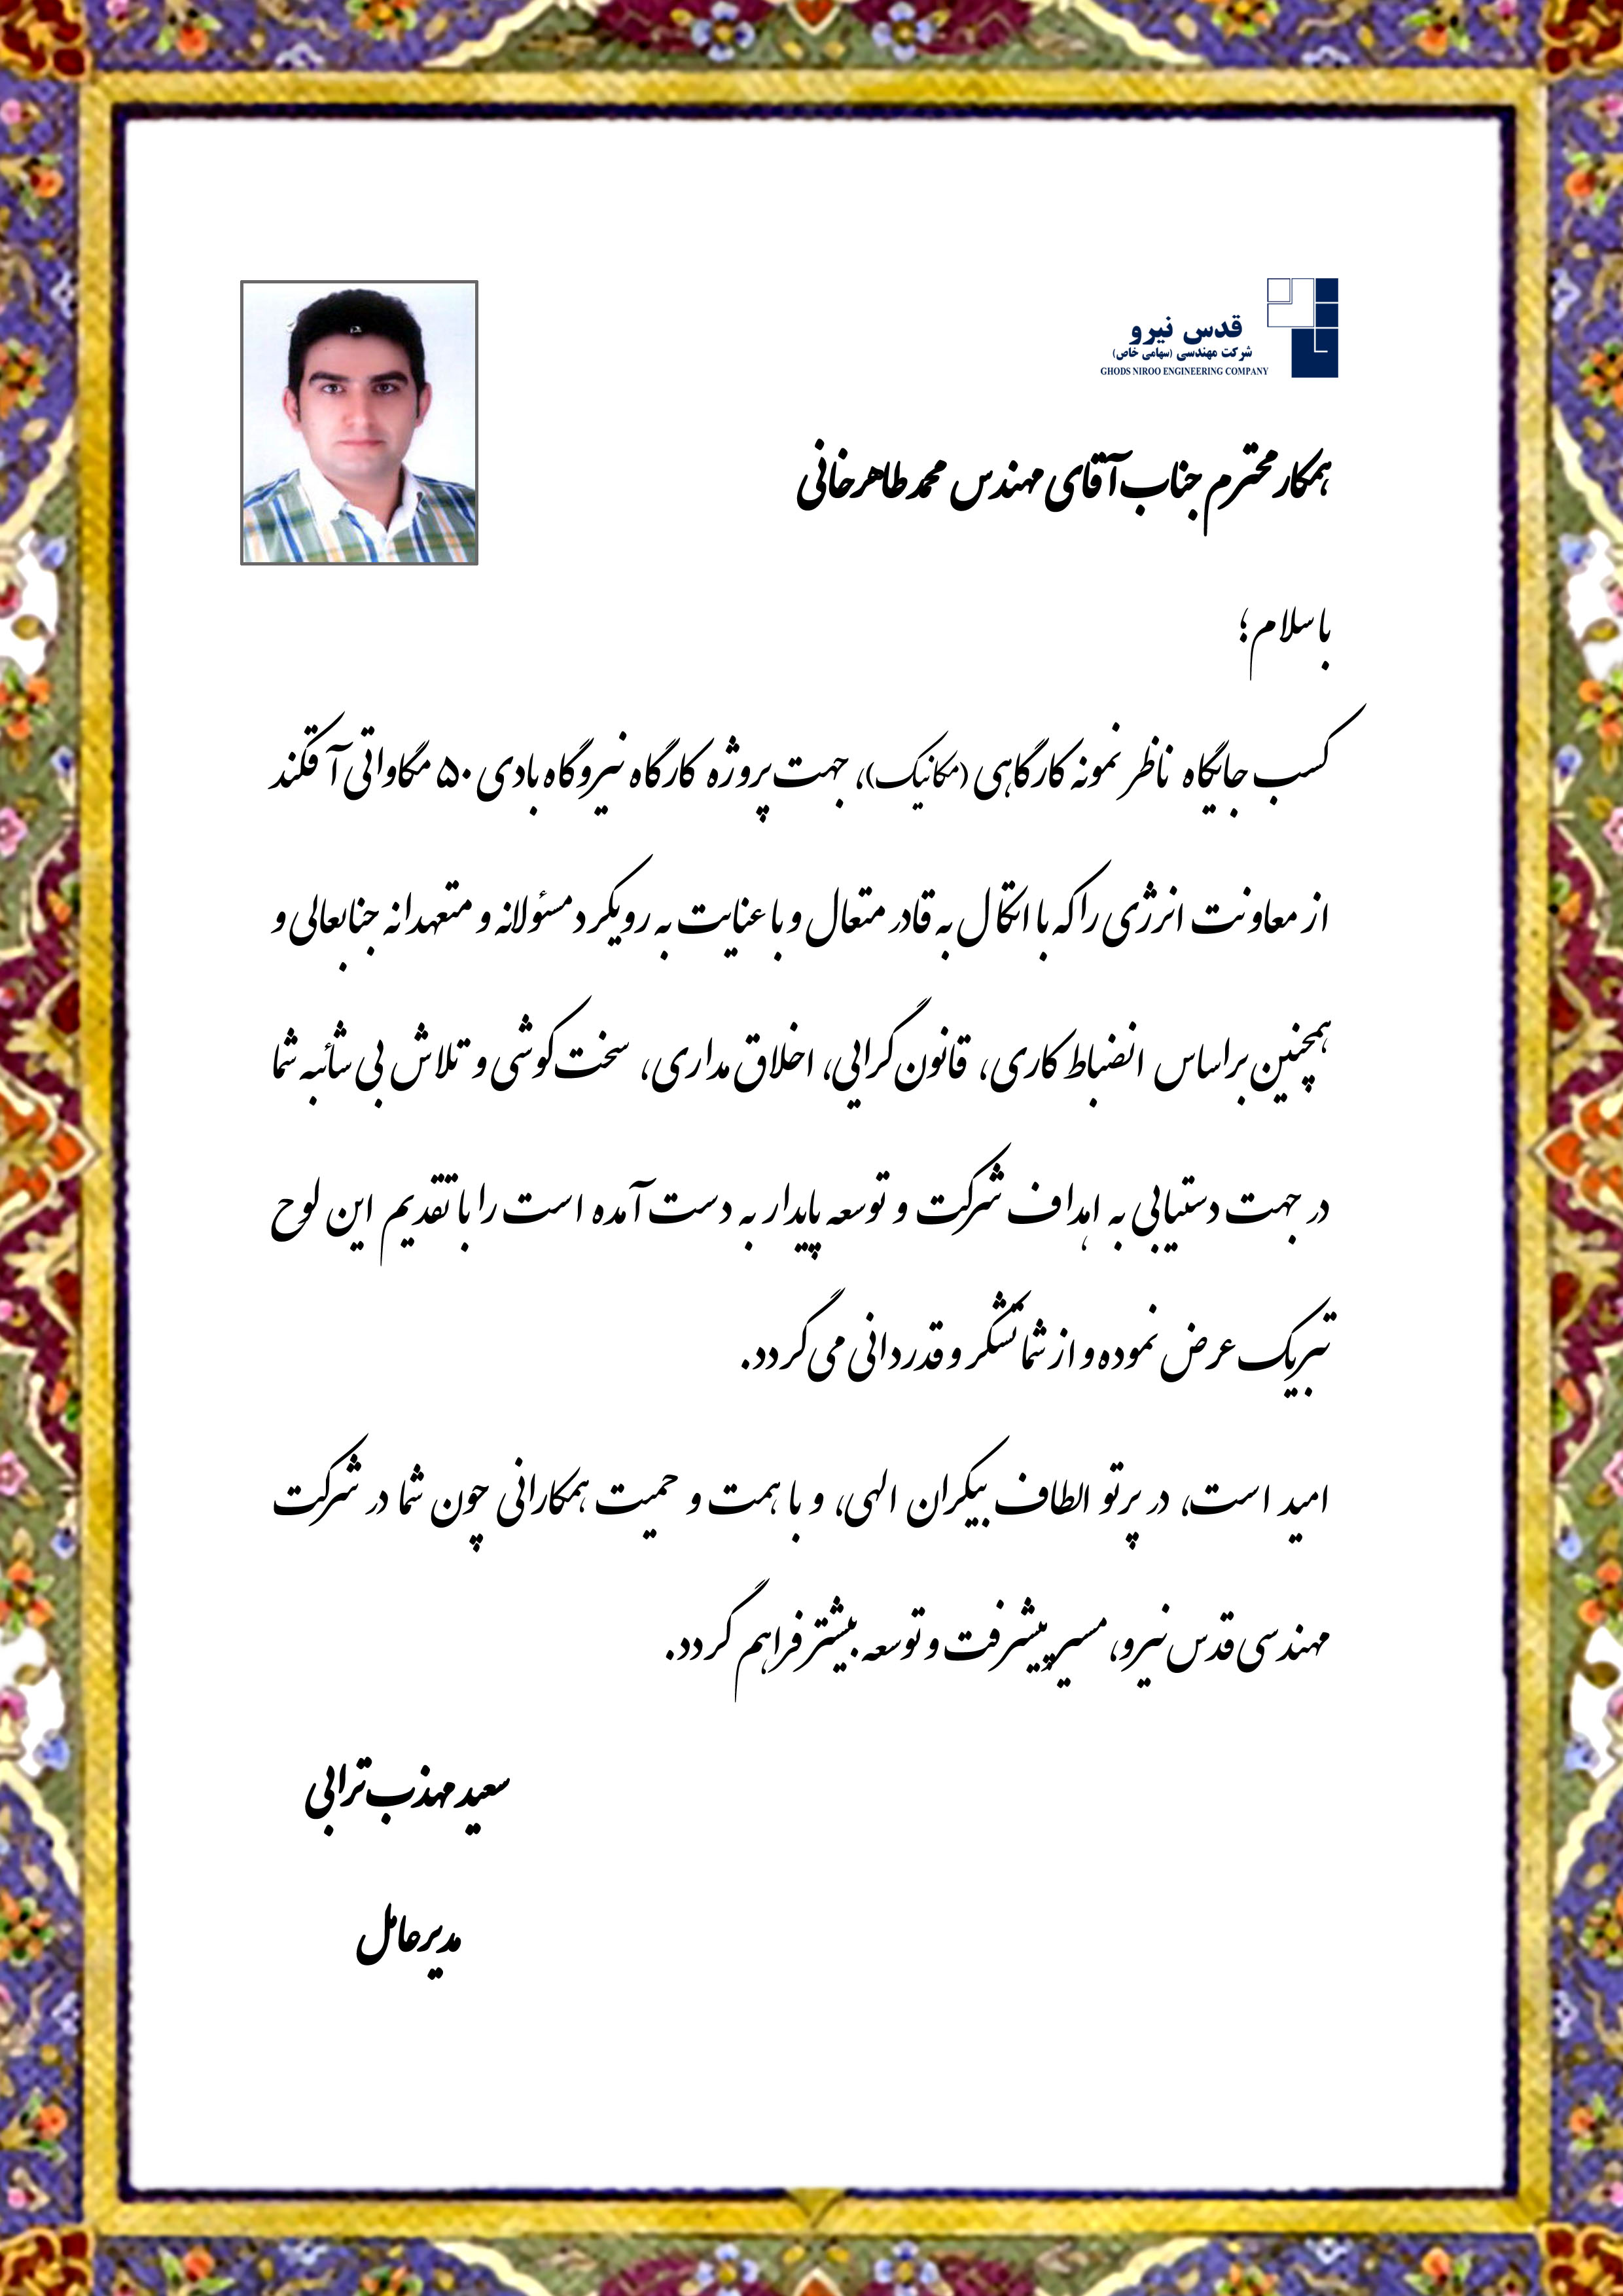 قدس نیرو
شرکت مهندسی (سهامی خاص)
GHODS NIROO ENGINEERING COMPANY
همکار محترم جناب آقای مهندس محمد طاهرخانی
با سلام؛
کسب جایگاه ناظر نمونه کارگاهی (مکانیک)، جهت پروژه کارگاه نیروگاه بادی ۵۰ مگاواتی آقکند
از معاونت انرژی را که با اتکال به قادر متعال و با عنایت به رویکرد مسئولانه و متعهدانه جنابعالی و
همچنین براساس انضباط کاری، قانون گرایی، اخلاق مداری، سخت کوشی و تلاش بی شائبه شما
در جهت دستیابی به اهداف شرکت و توسعه پایدار به دست آمده است را با تقدیم این لوح
تبریک عرض نموده و از شما تشکر و قدردانی می گردد.
امید است، در پرتو الطاف بیکران الهی، و با همت و حمیت همکارانی چون شما در شرکت
مهندسی قدس نیرو، مسیر پیشرفت و توسعه بیشتر فراهم گردد.
سعید مهذب ترابی
مدیرعامل